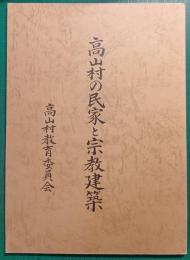 高山村の民家と宗教建築
高山村教育委員会